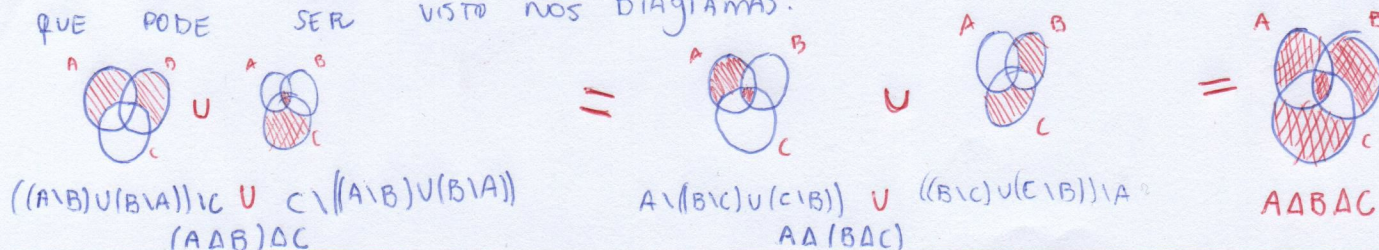 QUE PODE SER VISTO NOS DIAGRAMAS.
A B C ∪ A B C = A B C ∪ A B C = A B C
((A\B)∪(B\A))\C ∪ C\((A\B)∪(B\A)) A\((B\C)∪(C\B)) ∪ ((B\C)∪(C\B))\A A∆B∆C
(A∆B)∆C A∆(B∆C)